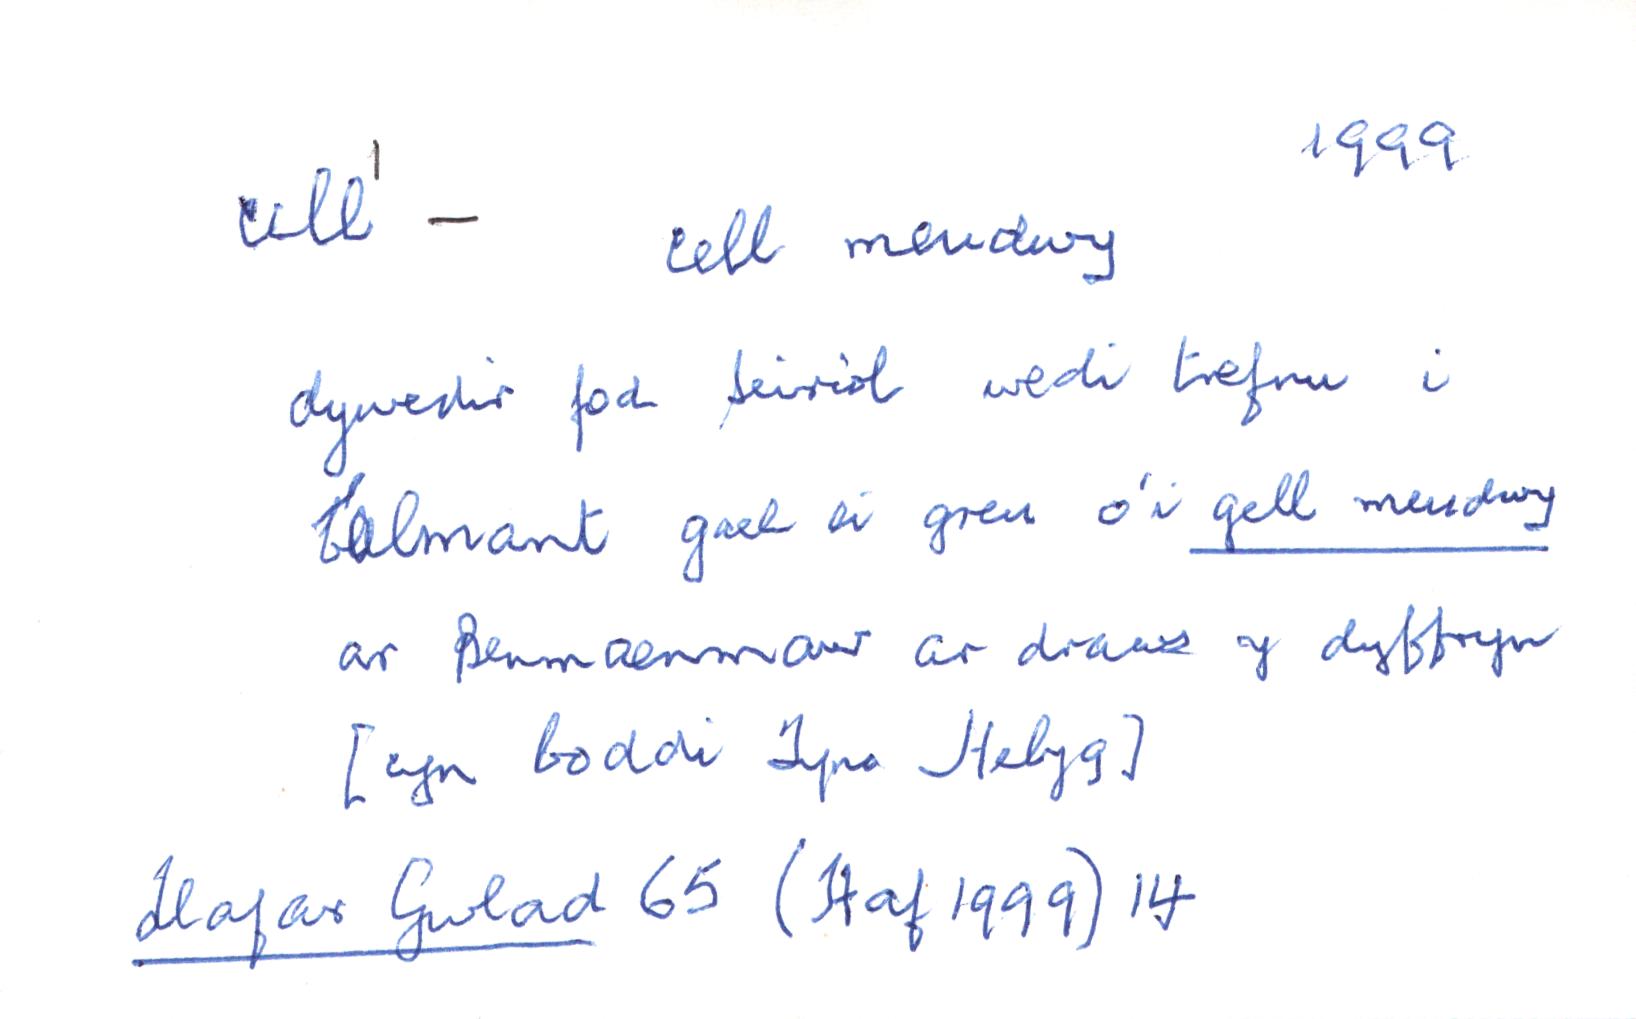 1999
cell¹ — cell meudwy
dywedir fod Seiriol wedi trefnu i
balmant gael ei greu o'i gell meudwy
ar Benmaenmawr ar draws y dyffryn
[cyn boddi Tyno Helyg]
Llafar Gwlad 65 (Haf 1999) 14